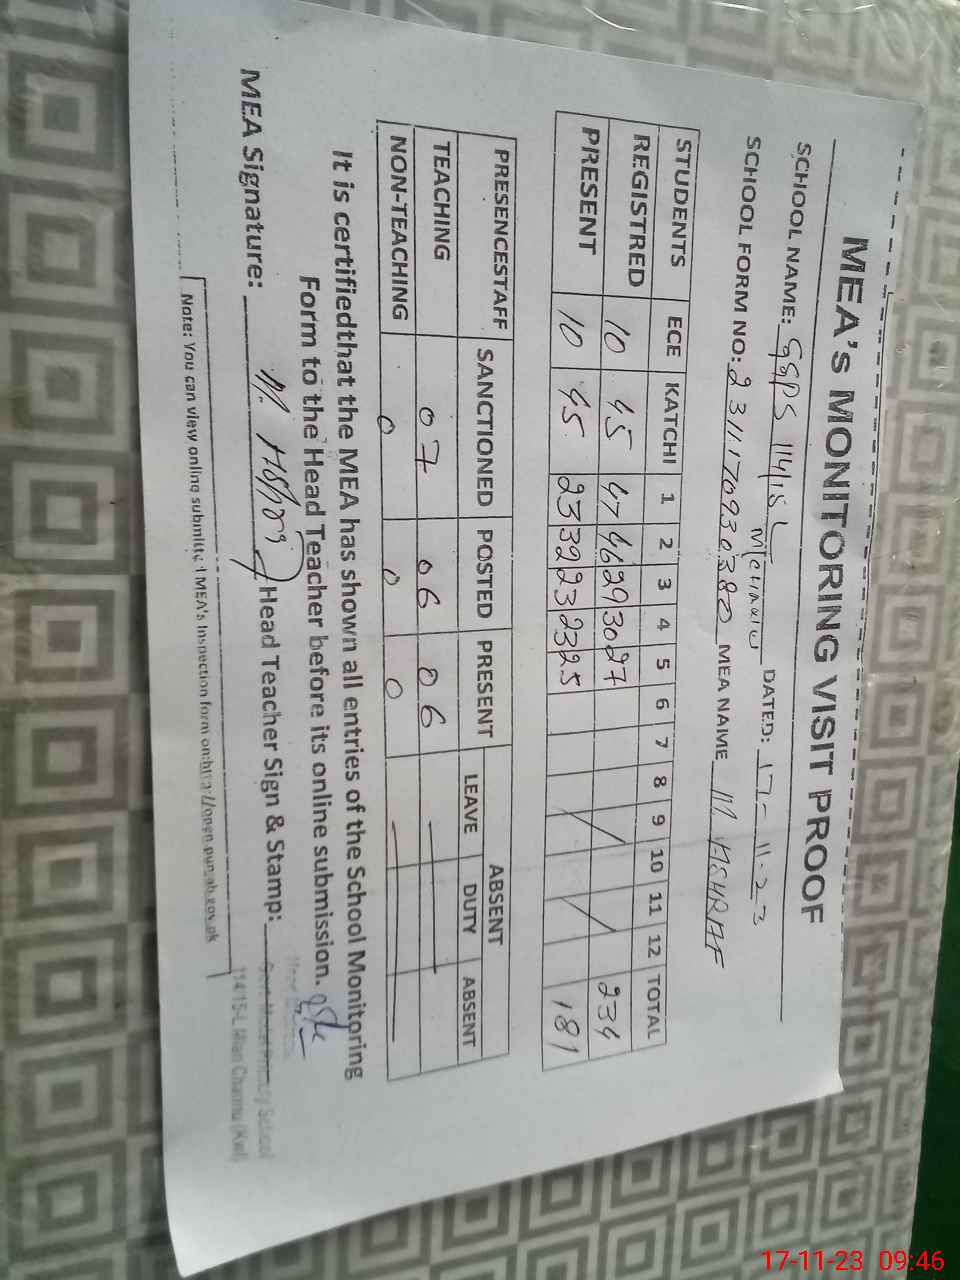 MEA's MONITORING VISIT PROOF
SCHOOL NAME: GGPS 114/15 L DATED: 17-11-23
SCHOOL FORM NO: 2311170930380 MEA NAME M ASHRAF
STUDENTS ECE KATCHI 1 2 3 4 5 6 7 8 9 10 11 12 TOTAL
REGISTRED 10 45 47 46 29 30 27 234
PRESENT 10 45 23 32 23 23 25 181
PRESENCESTAFF SANCTIONED POSTED PRESENT ABSENT
LEAVE DUTY ABSENT
TEACHING 07 06 06
NON-TEACHING 0 0 0
It is certifiedthat the MEA has shown all entries of the School Monitoring
Form to the Head Teacher before its online submission.
MEA Signature: M. Ashraf Head Teacher Sign & Stamp:
Govt. Model Primary School
114/15-L Mian Channu (Kwl)
Note: You can view online submitted MEA's Inspection form on:http://open.punjab.gov.pk
17-11-23 09:46